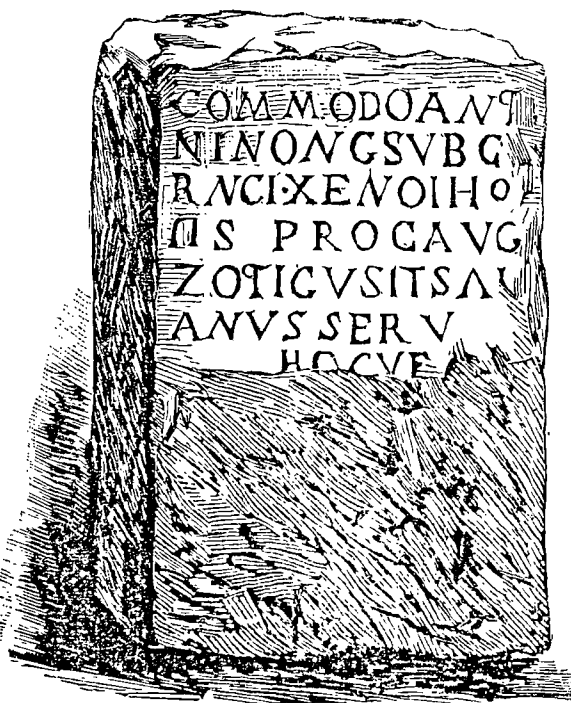 COMMODOANT
NINONGSVBG
RNCI·XENOIHO
MS PROCAVG
ZOTICVSITSAL
ANVSSERV
HOCVE